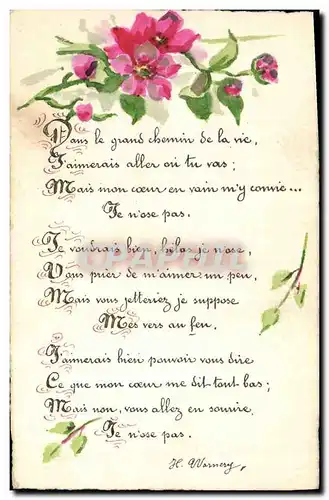 Dans le grand chemin de la vie,
J'aimerais aller où tu vas ;
Mais mon cœur en vain m'y convie...
Je n'ose pas.
Je voudrais bien, hélas, je n'ose
Vous prier de m'aimer un peu,
Mais vous jetteriez je suppose
Mes vers au feu.
J'aimerais bien pouvoir vous dire
Ce que mon cœur me dit tout bas ;
Mais non, vous allez en sourire,
Je n'ose pas.
H. Warnery,